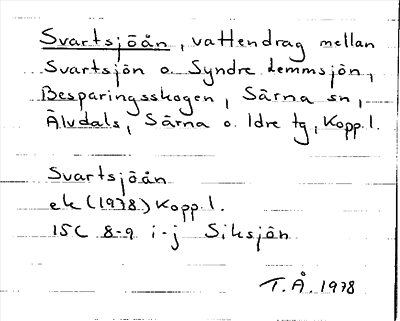 Svartsjöån, vattendrag mellan
Svartsjön o. Syndre Lemmsjön,
Besparingsskogen, Särna sn,
Älvdals, Särna o. Idre tg, Kopp.l.
Svartsjöån
ek (1978) Kopp.l.
15C 8-9 i-j Siksjön
T.Å. 1978